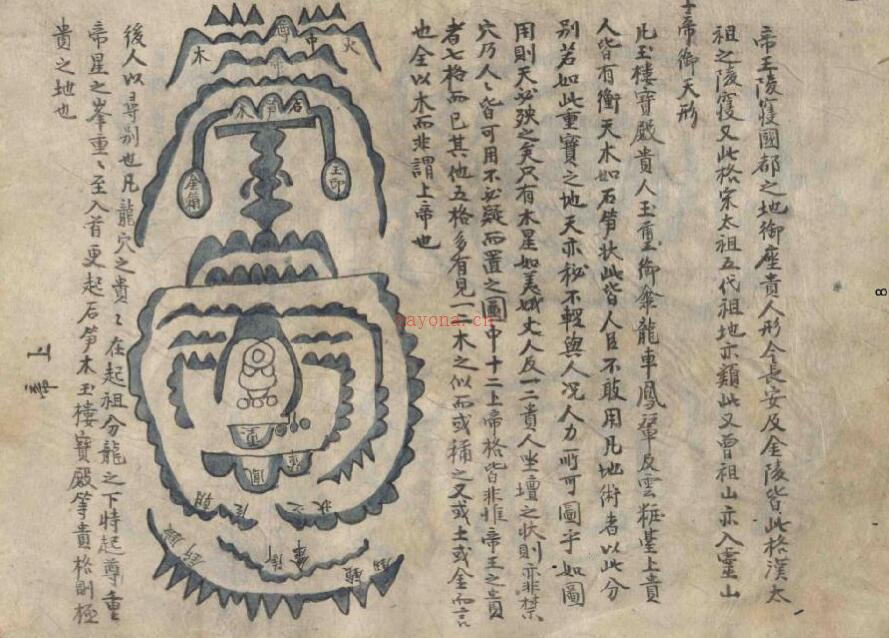 帝王陵寢國都之地御座貴人形今長安及金陵皆此格漢太
祖之陵寢又此格宋太祖五代祖地亦類此又曾祖山亦入靈山
帝御天形
凡玉樓寶殿貴人玉璽御傘龍車鳳輦及雲粧臺上貴
人皆有衝天木如石笋状此皆人臣不敢用凡地術者以此分
别若如此重寶之地天亦秘不輕與人况人力所可圖乎如圖
用則天必殃之矣只有木星如美女人反一二貴人坐壇之状則亦非禁
穴乃人人皆可用不必疑而置之圖中十二上帝格皆非惟帝王之貴
者七格而已其他五格多有見一木之似而或稱之又或土或金而言
也全以木而非謂上帝也
火
中
帝
木
石
笋
木
玉印
金箱
車
鳳
輦
朝
殿
龍
後人以尋别也凡龍穴之貴貴在起祖分龍之下特起尊重
帝星之峯重重至入首更起石笋木玉樓寶殿等貴格則極
貴之地也
上帝
8
nayona.cn